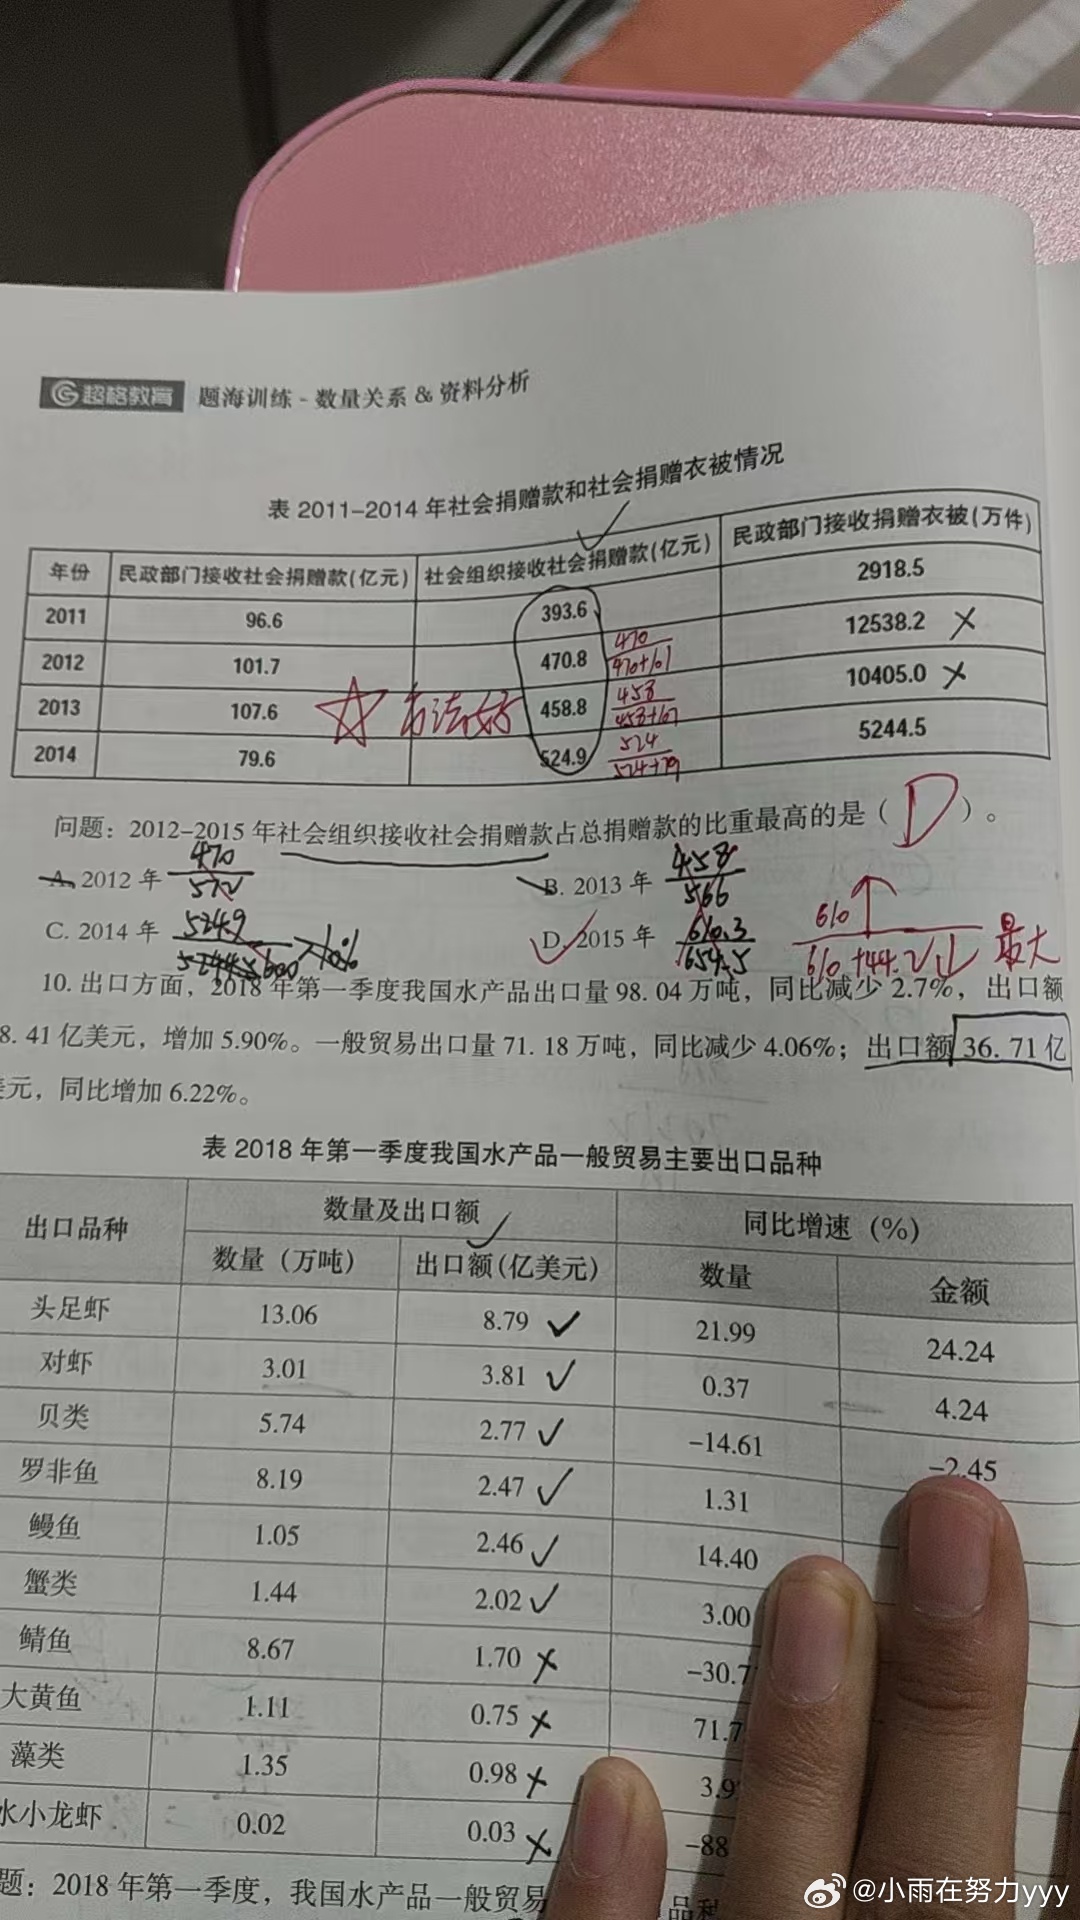 超格教育 题海训练 - 数量关系 & 资料分析
表 2011-2014 年社会捐赠款和社会捐赠衣被情况
年份 民政部门接收社会捐赠款(亿元) 社会组织接收社会捐赠款(亿元) 民政部门接收捐赠衣被(万件)
2011 96.6 393.6 2918.5
2012 101.7 470.8 470/470+101 12538.2 ×
2013 107.6 ☆ 方法好 458.8 458/458+107 10405.0 ×
2014 79.6 524.9 524/524+79 5244.5
问题：2012-2015 年社会组织接收社会捐赠款占总捐赠款的比重最高的是（ D ）。
A. 2012 年 470/572 B. 2013 年 458/566
C. 2014 年 524.9/600 >10% D. 2015 年 610.3/654.5 610↑/610+44.2↓ 最大
10. 出口方面，2018 年第一季度我国水产品出口量 98. 04 万吨，同比减少 2.7%，出口额
8. 41 亿美元，增加 5.90%。一般贸易出口量 71. 18 万吨，同比减少 4.06%；出口额 36. 71 亿
美元，同比增加 6.22%。
表 2018 年第一季度我国水产品一般贸易主要出口品种
出口品种 数量及出口额 同比增速（%）
数量（万吨） 出口额(亿美元) 数量 金额
头足虾 13.06 8.79 ✓ 21.99 24.24
对虾 3.01 3.81 ✓ 0.37 4.24
贝类 5.74 2.77 ✓ -14.61 -2.45
罗非鱼 8.19 2.47 ✓ 1.31
鳗鱼 1.05 2.46 ✓ 14.40
蟹类 1.44 2.02 ✓ 3.00
鲭鱼 8.67 1.70 × -30.7
大黄鱼 1.11 0.75 × 71.7
藻类 1.35 0.98 × 3.9
水小龙虾 0.02 0.03 × -88
题：2018 年第一季度，我国水产品一般贸易 品种
@小雨在努力yyy